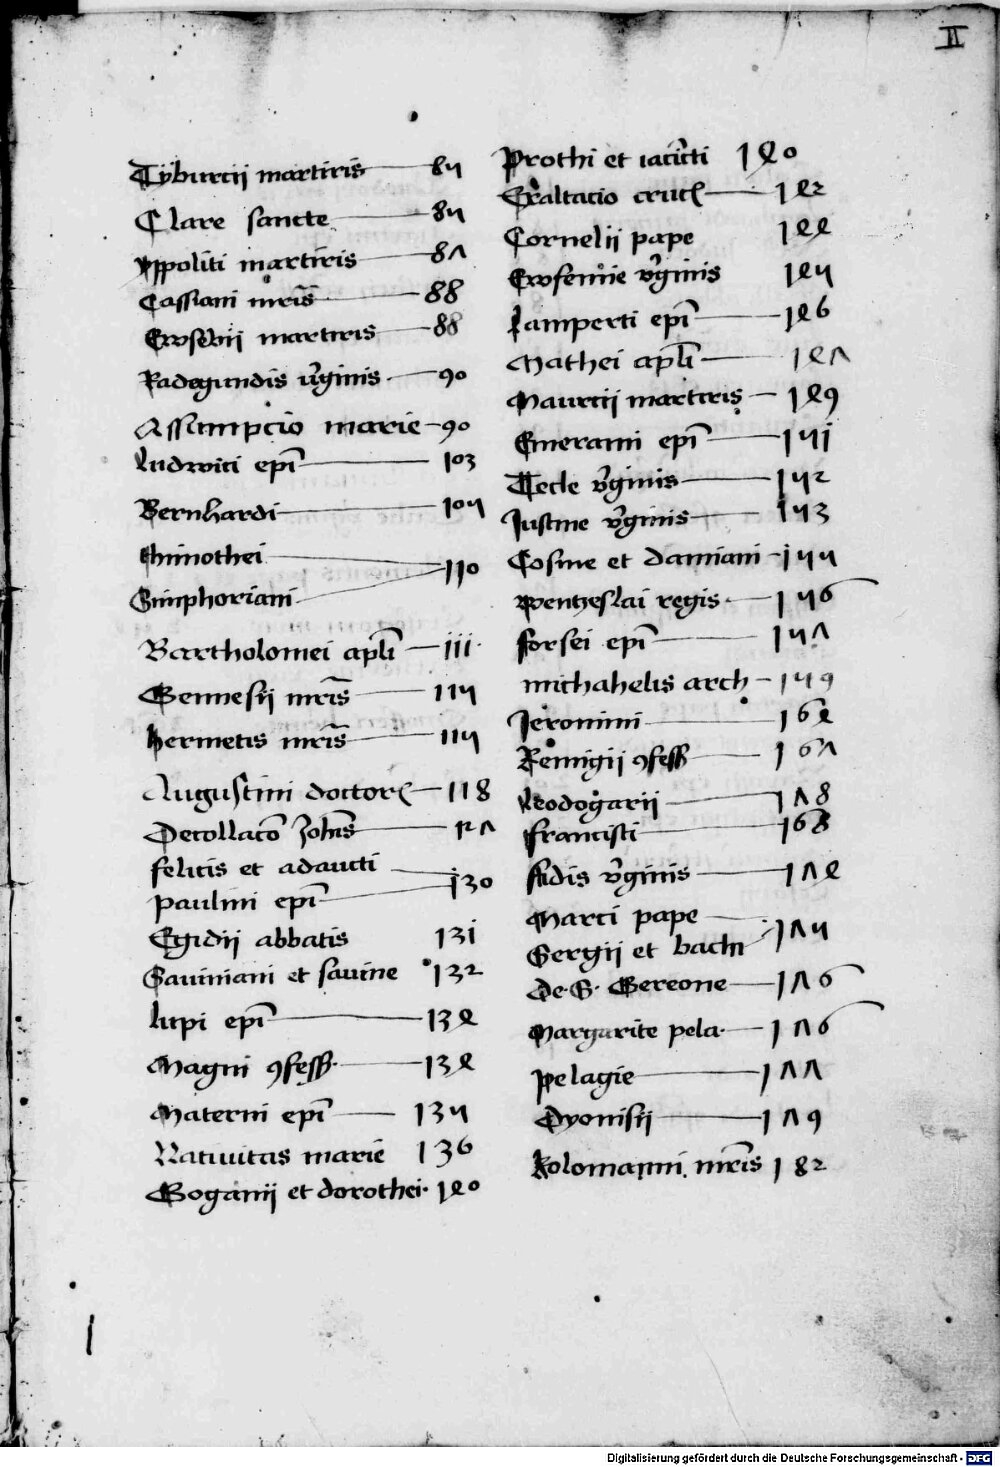 II
Tyburcii martiris 85
Clare sancte 85
Yppoliti martiris 87
Cassiani mr̄is 88
Ewsebii martiris 88
Radegundis v̓ginis 90
Assumpcio marie 90
Ludwici ep̄i 103
Bernhardi 105
Thimothei 110
Simphoriani
Bartholomei apl̄i 111
Gennesii mr̄is 115
Hermetis mr̄is 115
Augustini doctorꝭ 118
Decollac̄o Joh̄is 127
Felicis et adaucti 130
Paulini ep̄i
Egidii abbatis 131
Saviniani et savine 132
Lupi ep̄i 134
Magni ꝯfess. 134
Materni ep̄i 135
Nativitas marie 136
Gorganii et dorothei 140
Prothi et iacincti 140
Exaltacio crucꝭ 142
Cornelii pape 144
Ewfemie v̓ginis 145
Lamperti ep̄i 146
Mathei apl̄i 147
Mauricii martiris 149
Emerami ep̄i 151
Tecle v̓ginis 152
Justine v̓ginis 153
Cosme et damiani 155
Wentzeslai regis 156
Forsei ep̄i 157
Michahelis arch 159
Jeronimi 164
Remigii ꝯfess 167
Leodogarii 178
Francisci 168
Fidis v̓ginis 174
Marci pape 175
Sergii et bachi
De S. Gereone 176
Margarite pela. 176
Pelagie 177
Dyonisii 179
Kolomanni mr̄is 182
1
Digitalisierung gefördert durch die Deutsche Forschungsgemeinschaft - DFG